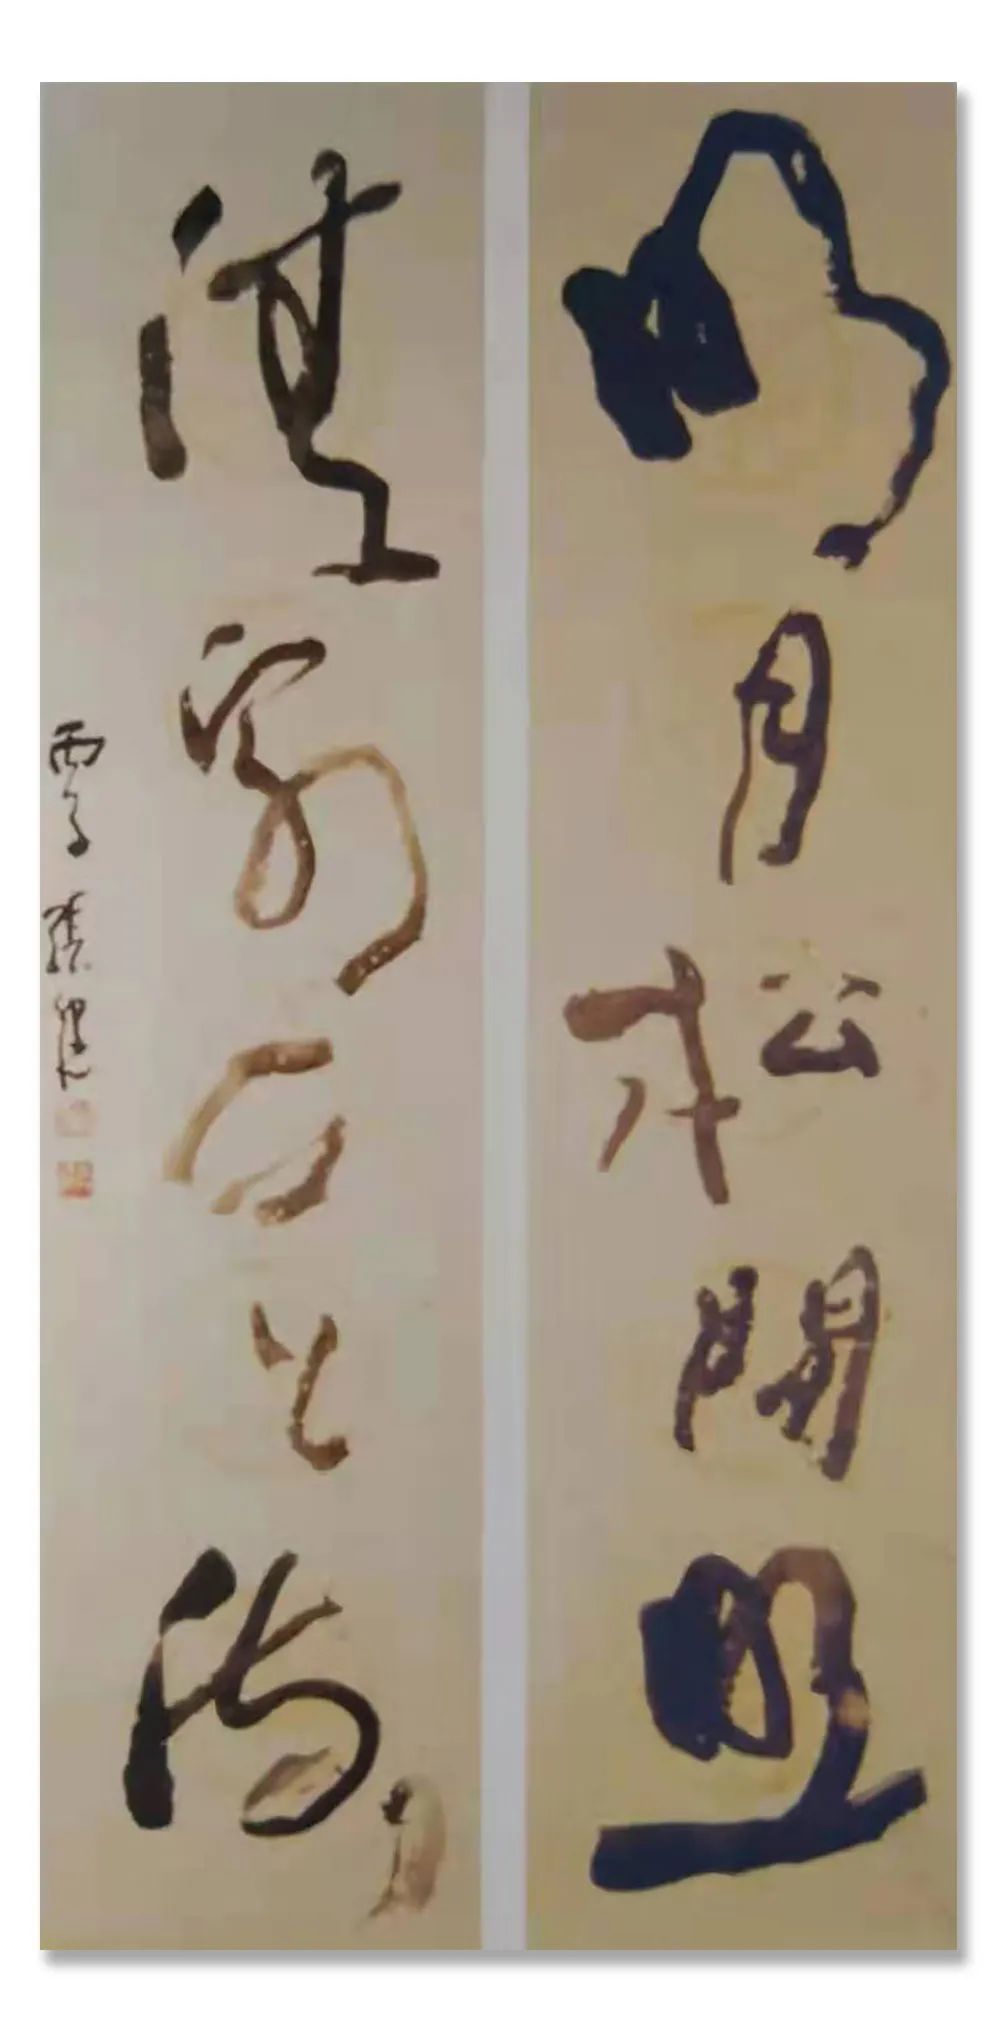 明月松間照
清泉石上流
丙子